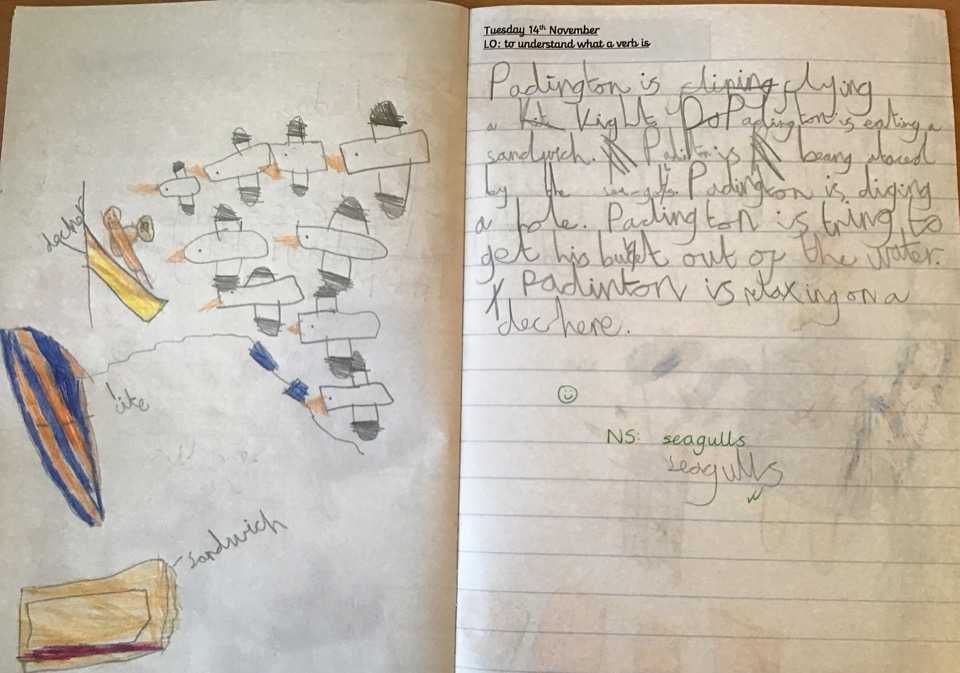 decher
kite
sandwich
Tuesday 14th November
LO: to understand what a verb is
Padington is cliping clying
a Kit Kight Do Padington is eating a
sandwich. Padinton is beang ataced
by the sea-guls. Padington is diging
a hole. Padington is tring to
get his buket out of the water.
Padinton is relaxing on a
dechere.
NS: seagulls
seagulls